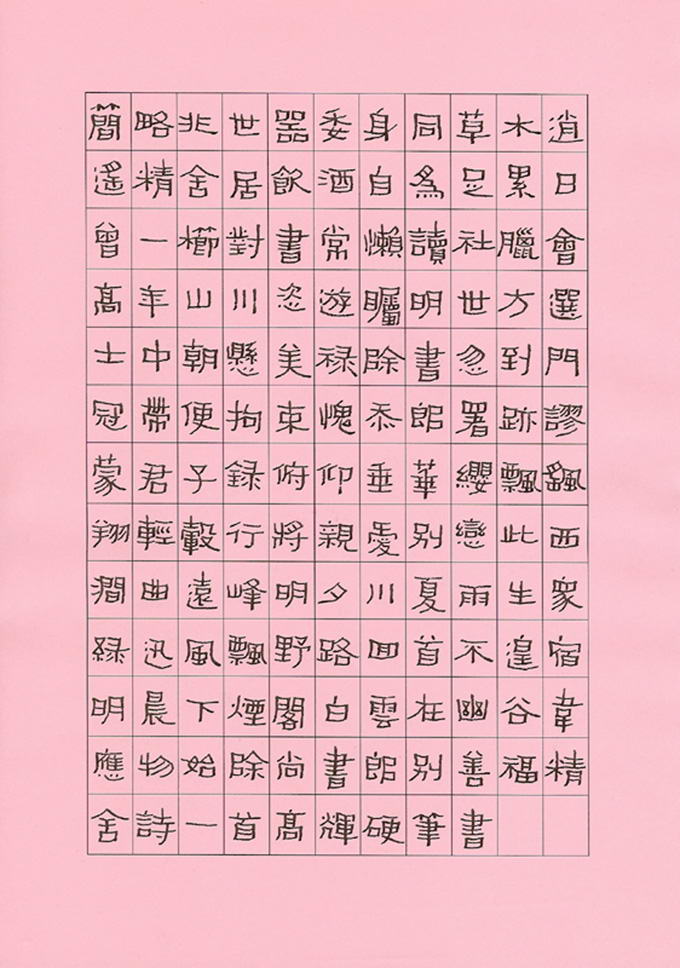 簡略非世器委身同草木逍
遙精舍居飲酒自為足累日
曾一櫛對書常懶讀社臘會
高年山川恣遊矚明世方選
士中朝懸美禄除書忽到門
冠帶便拘束愧忝郎署跡謬
蒙君子録俯仰垂華纓飄颻
翔輕轂行將親愛別戀此西
澗曲遠峰明夕川夏雨生眾
綠迅風飄野路回首不遑宿
明晨下煙閣白雲在幽谷韋
應物始除尚書郎別善福精
舍詩一首高輝硬筆書